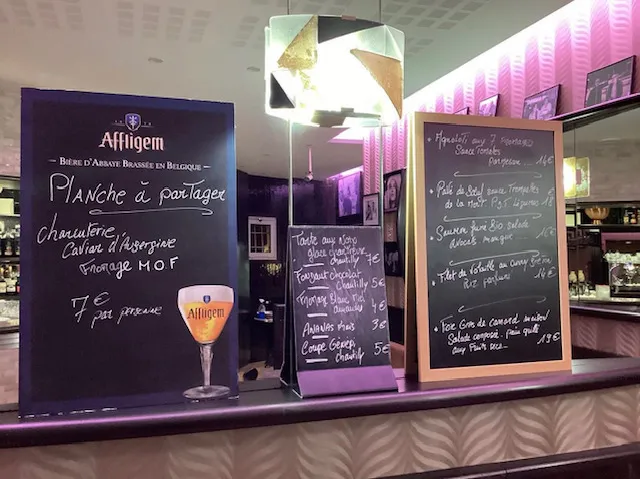 Affligem
BIÈRE D'ABBAYE BRASSÉE EN BELGIQUE
PLANCHE à PARTAGER
Charcuterie,
Caviar d'Aubergine
Fromage M.O.F
7€
par personne
Affligem
Tarte aux Noix
glace
chantilly 7€
chocolat
Chantilly 5€
Fromage Blanc Miel
amandes 4€
ANANAS frais 3€
Coupe
chantilly 5€
aux 7
Sauce tomates
parmesan 14€
Pavé de sauce Trompettes
de la mort 18€
Saumon fumé Bio salade
avocats mangue 16€
Filet de Volaille au curry
Riz parfumé 14€
Foie Gras de canard maison
Salade composée, pain grillé
aux Fruits secs 19€